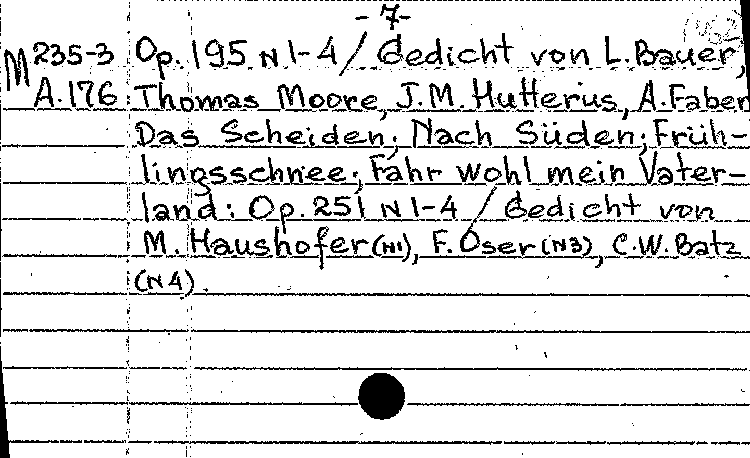 -7-
M 235-3 Op. 195 N 1-4 / Gedicht von L. Bauer,
A.176 Thomas Moore, J.M. Hutterus, A. Faber
Das Scheiden; Nach Süden; Früh-
lingsschnee; Fahr wohl mein Vater-
land: Op. 251 N 1-4 / Gedicht von
M. Haushofer (N1), F. Oser (N3), C.W. Batz
(N4).